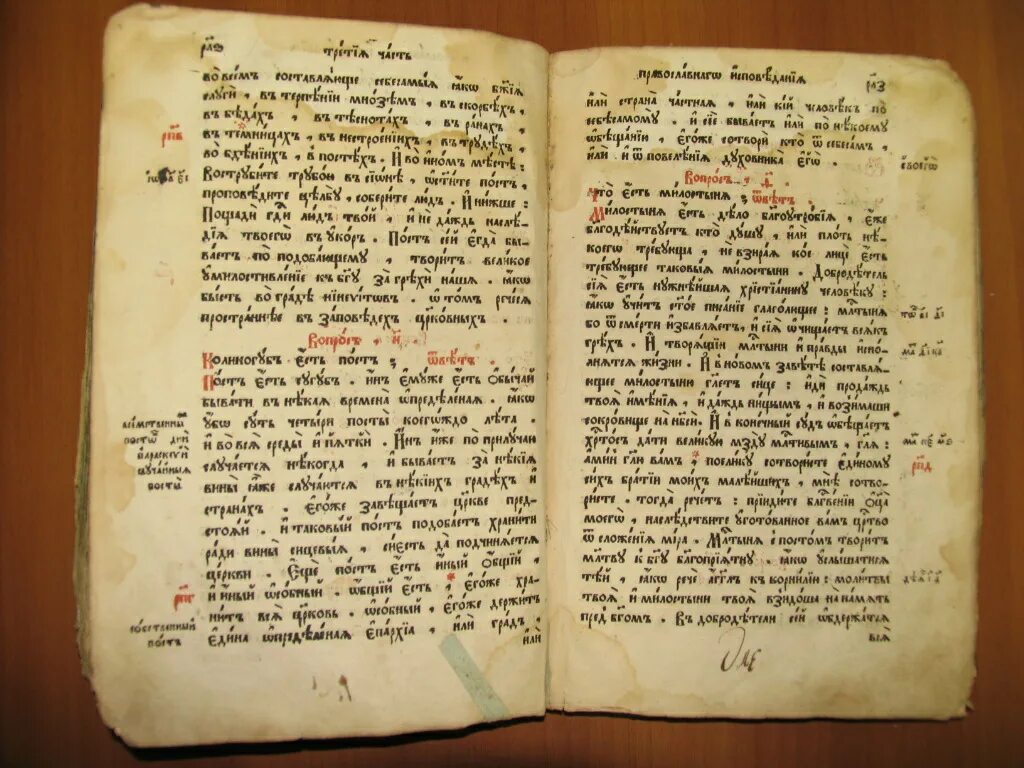 рл҃з
третїѧ часть
во всемъ составлѧюще себе самыѧ ꙗкѡ бж҃їѧ
слꙋги , въ терпѣнїи мнозѣмъ , въ скорбѣхъ ,
въ бѣдахъ , въ тѣснотахъ , въ ранахъ ,
въ темницахъ , въ нестроенїихъ , въ трꙋдѣхъ ,
во бдѣнїихъ , в постѣхъ . И во иномъ мѣстѣ :
Вострꙋбите трꙋбою въ сїѡнѣ , ѡст҃ите постъ ,
проповѣдите цѣльбꙋ , соберите люди . И нижше :
Пощади гд҃и люди твоѧ , и не даждь наслѣ-
дїѧ твоегѡ въ ꙋкоръ . Постъ сей егда бы-
ваетъ по подобающемꙋ , творитъ великое
ꙋмилостивленїе къ бг҃ꙋ за грѣхи нашѧ . ꙗкѡ
бысть во градѣ нїневїтовъ . ѡ томъ речесѧ
пространнѣе въ заповѣдехъ цр҃ковныхъ .
Вопросъ , и҃ .
Коликогꙋбъ есть постъ ; ѿвѣтъ .
Постъ есть сꙋгꙋбъ . инъ емꙋже есть обычай
бывати въ нѣкаѧ времена ѡпредѣленаѧ . ꙗкѡ
ꙋбѡ сꙋть четыри посты коегѡждо лѣта .
и во всѧ среды и пѧтки . Инъ иже по прилꙋчаю
слꙋчаетсѧ нѣкогда , и бываетъ за нѣкїѧ
вины ꙗже слꙋчаютсѧ въ нѣкїихъ градѣхъ и
странахъ . Егоже завѣщаетъ церкве пред-
стоѧй . и таковый постъ подобаетъ хранити
ради вины сицевыѧ , сиесть да подчинѧетсѧ
церкви . Еще постъ есть иный общїй ,
и иный ѡсобный . ѡбщїй есть , егоже хра-
нитъ всѧ церковь . ѡсобный , егоже держитъ
едина ѡпредѣленаѧ епархїа , или градъ ,
или
собственный
постъ
православнагѡ исповѣданїѧ
или страна частнаѧ , или кїй человѣкъ по
себѣ самомꙋ . и сїе бываетъ или по нѣкоемꙋ
ѡбѣщанїи , егоже сотвори кто ѿ себе самъ ,
или и ѿ повелѣнїѧ дꙋховника егѡ .
своегѡ
Вопросъ , ѳ҃ .
Что есть милостынѧ ; ѿвѣтъ .
Милостынѧ есть дѣло бл҃гоꙋтробїѧ , еже
благодѣйствꙋетъ кто дꙋшꙋ , или плоть нѣ-
коегѡ требꙋюща , не взираѧ кое лицѐ есть
требꙋющее таковыѧ милостыни . Добродѣтель
сїѧ есть нꙋжнѣйшаѧ христїаннꙋ человѣкꙋ :
ꙗкѡ ꙋчитъ ст҃ое писанїе глаголющее : мл҃тынѧ
бо ѿ смерти избавлѧетъ , и сїѧ ѡчищаетъ всѧкъ
грѣхъ . И творѧщїи мл҃тыни и правды испо-
лнѧтсѧ жизни . И в новомъ завѣтѣ составлѧ-
ющее милостыню гл҃етъ сице : иди продаждь
твоѧ имѣнїѧ , и даждь нищымъ , и возимаши
сокровище на нб҃си . И в конечный сꙋдъ ѡбѣщаетъ
хр҃тосъ дати великꙋю мздꙋ мл҃тивымъ , гл҃ѧ :
аминь гл҃ю вамъ , поеликꙋ сотвористе единомꙋ
сихъ братїи моихъ маленшихъ , мнѣ сотво-
ристе . тогда речетъ : прїидите благословенїи оц҃а
моегѡ , наслѣдствꙋите ꙋготованное вамъ цр҃тво
ѿ сложенїѧ мїра . Мл҃тынѧ с постомъ творитъ
мл҃твꙋ к бг҃ꙋ благопрїѧтнꙋ . ꙗкѡ ꙋслышатисѧ
тѣй , ꙗкѡ рече агг҃лъ къ корнилїю : молитвы
твоѧ и милостыни твоѧ взыдоша на памѧть
пред бг҃омъ . Въ добродѣтели сей ѡбдержатсѧ
выѧ